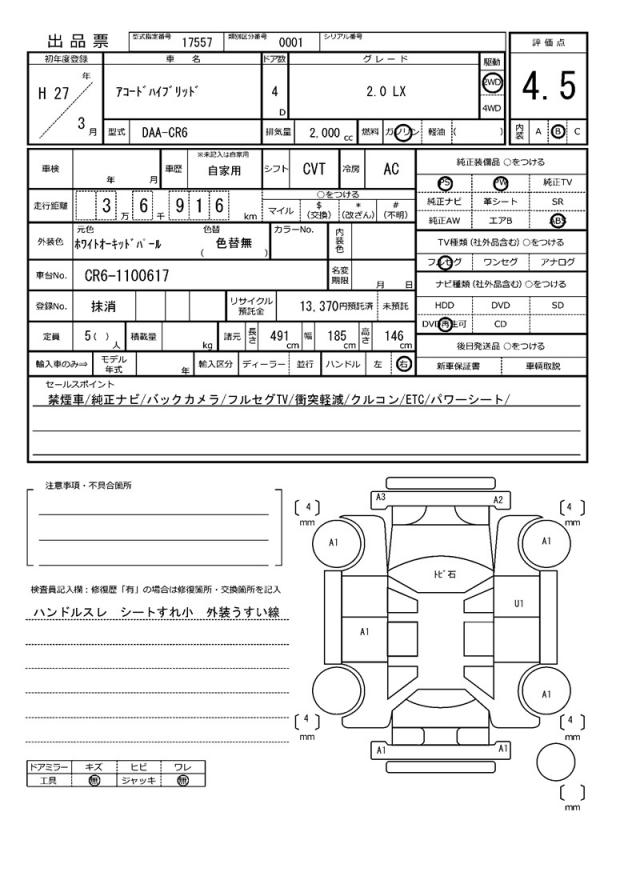 出品票 型式指定番号 17557 類別区分番号 0001 シリアル番号
初年度登録 車 名 ドア数 グレード 駆動 評価点
H 27 年 3 月 アコードハイブリッド 4 D 2.0 LX 2WD 4WD 4.5
型式 DAA-CR6 排気量 2,000 cc 燃料 ガソリン 軽油 ( ) 内装 A B C
車検 年 月 車歴 ※未記入は自家用 自家用 シフト CVT 冷房 AC 純正装備品 ○をつける
PS PW 純正TV
走行距離 3 万 6 千 9 1 6 km ○をつける
マイル $ (交換) * (改ざん) # (不明)
純正ナビ 革シート SR
純正AW エアB ABS
外装色 元色 ホワイトオーキッドパール 色替 色替無 ( ) カラーNo. 内装色
TV種類 (社外品含む) ○をつける
フルセグ ワンセグ アナログ
車台No. CR6-1100617 名変期限 月 日
ナビ種類 (社外品含む) ○をつける
HDD DVD SD
DVD再生可 CD
登録No. 抹消 リサイクル預託金 13,370円預託済 未預託
定員 5 ( ) 人 積載量 kg 諸元 長さ 491 cm 幅 185 cm 高さ 146 cm
後日発送品 ○をつける
新車保証書 車輌取説
輸入車のみ⇒ モデル年式 年 輸入区分 ディーラー 並行 ハンドル 左 右
セールスポイント
禁煙車/純正ナビ/バックカメラ/フルセグTV/衝突軽減/クルコン/ETC/パワーシート/
注意事項・不具合箇所
検査員記入欄：修復歴「有」の場合は修復箇所・交換箇所を記入
ハンドルスレ シートすれ小 外装うすい線
ドアミラー キズ ヒビ ワレ
工具 無 ジャッキ 無
[ 4 ] mm A3 A2 [ 4 ] mm
A1 A1
トビ石
U1
A1
A1
[ 4 ] mm [ 4 ] mm
A1 A1
[ ] mm